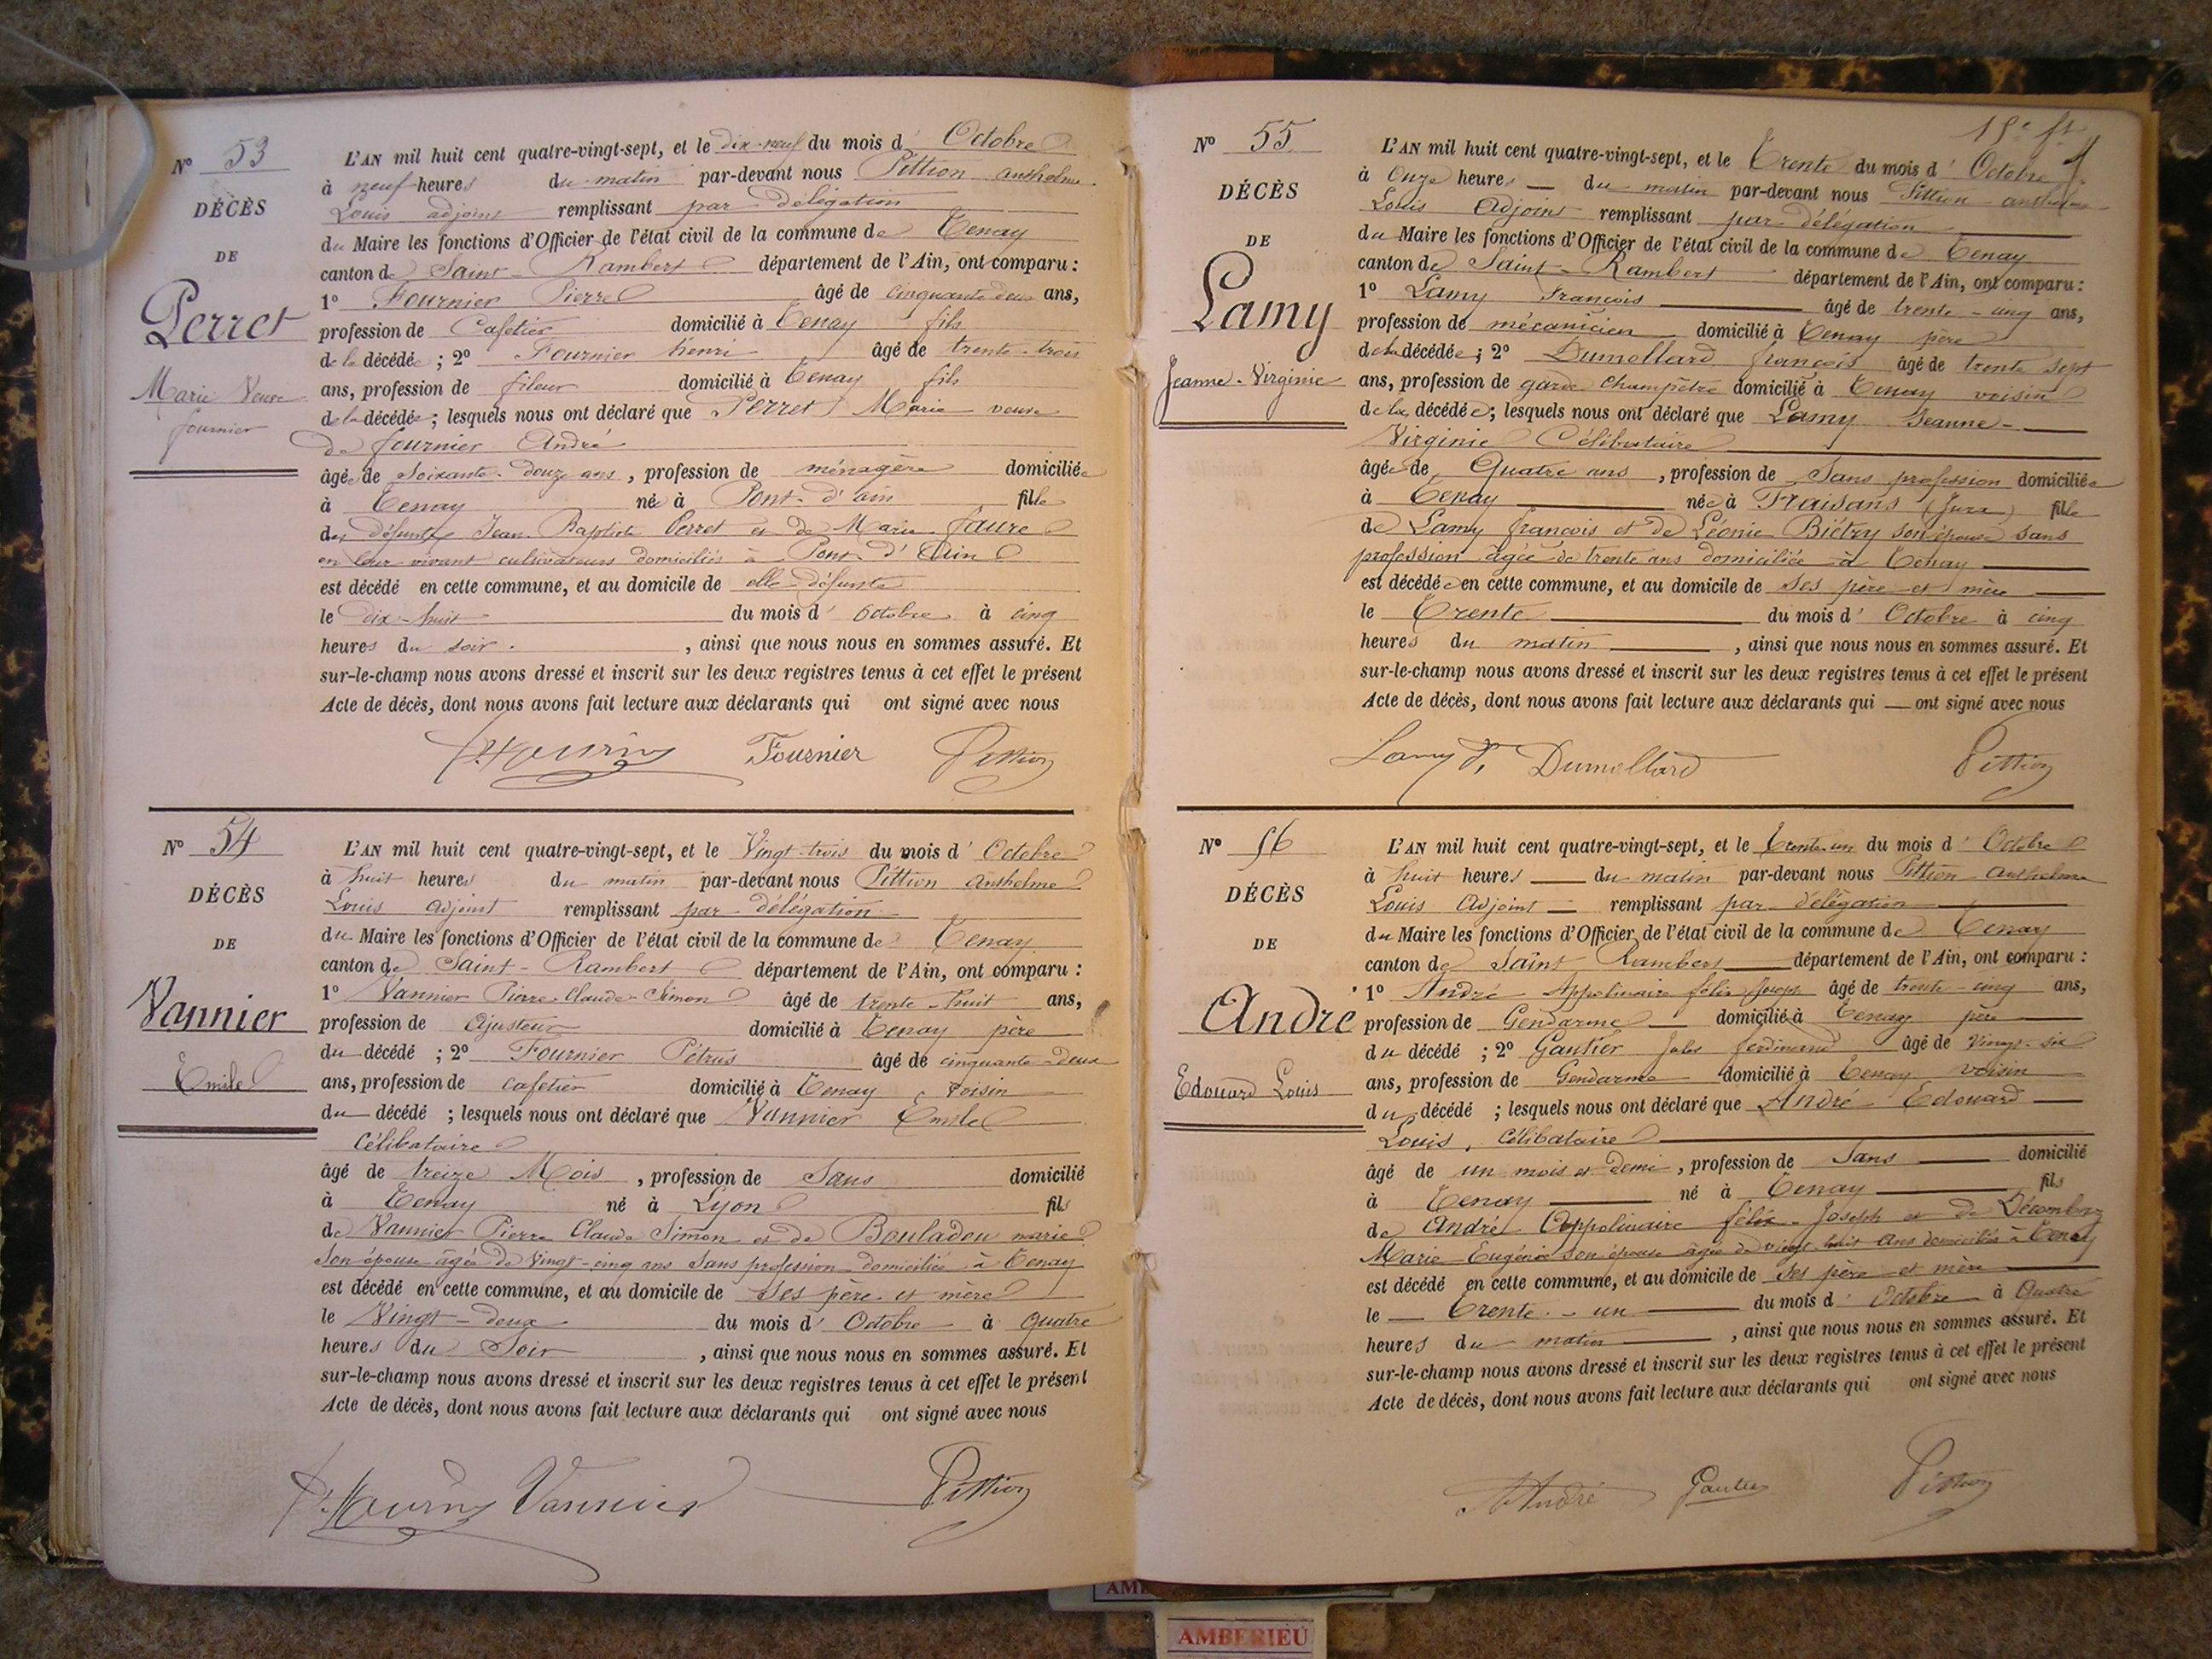 N° 53
DÉCÈS
DE
Perret
Marie Veuve
fournier
L'AN mil huit cent quatre-vingt-sept, et le dix-neuf du mois d' Octobre
à neuf heures du matin par-devant nous Pittion anthelme
Louis adjoint remplissant par délégation
du Maire les fonctions d'Officier de l'état civil de la commune de Tenay
canton de Saint-Rambert département de l'Ain, ont comparu :
1° Fournier Pierre âgé de cinquante deux ans,
profession de Cafetier domicilié à Tenay fils
de la décédée ; 2° Fournier henri âgé de trente-trois
ans, profession de fileur domicilié à Tenay fils
de la décédée ; lesquels nous ont déclaré que Perret Marie veuve
de fournier André
âgée de Soixante-douze ans, profession de ménagère domiciliée
à Tenay née à Pont-d'ain fille
des défunts Jean Baptiste Perret et de Marie Faure
en leur vivant cultivateurs domiciliés à Pont-d'Ain
est décédé en cette commune, et au domicile de elle défunte
le dix-huit du mois d' octobre à cinq
heures du soir. , ainsi que nous nous en sommes assuré. Et
sur-le-champ nous avons dressé et inscrit sur les deux registres tenus à cet effet le présent
Acte de décès, dont nous avons fait lecture aux déclarants qui ont signé avec nous
Fournier Pittion
N° 54
DÉCÈS
DE
Vannier
Emile
L'AN mil huit cent quatre-vingt-sept, et le Vingt-trois du mois d' Octobre
à huit heures du matin par-devant nous Pittion Anthelme
Louis adjoint remplissant par délégation
du Maire les fonctions d'Officier de l'état civil de la commune de Tenay
canton de Saint-Rambert département de l'Ain, ont comparu :
1° Vannier Pierre-Claude-Simon âgé de trente-huit ans,
profession de Ajusteur domicilié à Tenay père
du décédé ; 2° Fournier Pétrus âgé de cinquante-deux
ans, profession de cafetier domicilié à Tenay voisin
du décédé ; lesquels nous ont déclaré que Vannier Emile
célibataire
âgé de treize Mois , profession de Sans domicilié
à Tenay né à Lyon fils
de Vannier Pierre Claude Simon et de Bouladou marie
son épouse âgée de vingt-cinq ans sans profession domiciliée à Tenay
est décédé en cette commune, et au domicile de ses père et mère
le Vingt-deux du mois d' Octobre à quatre
heures du Soir , ainsi que nous nous en sommes assuré. Et
sur-le-champ nous avons dressé et inscrit sur les deux registres tenus à cet effet le présent
Acte de décès, dont nous avons fait lecture aux déclarants qui ont signé avec nous
Vannier Pittion
N° 55
DÉCÈS
DE
Lamy
Jeanne-Virginie
L'AN mil huit cent quatre-vingt-sept, et le Trente du mois d' Octobre
à Onze heures du matin par-devant nous Pittion anthelme
Louis Adjoint remplissant par délégation
du Maire les fonctions d'Officier de l'état civil de la commune de Tenay
canton de Saint-Rambert département de l'Ain, ont comparu :
1° Lamy François âgé de trente-cinq ans,
profession de mécanicien domicilié à Tenay père
de la décédée ; 2° Dumollard françois âgé de trente sept
ans, profession de garde champêtre domicilié à Tenay voisin
de la décédée ; lesquels nous ont déclaré que Lamy Jeanne-
Virginie Célibataire
âgée de Quatre ans , profession de Sans profession domiciliée
à Tenay née à Fraisans (Jura) fille
de Lamy françois et de Léonie Biétry son épouse sans
profession âgée de trente ans domiciliée à Tenay
est décédée en cette commune, et au domicile de ses père et mère
le Trente du mois d' Octobre à cinq
heures du matin , ainsi que nous nous en sommes assuré. Et
sur-le-champ nous avons dressé et inscrit sur les deux registres tenus à cet effet le présent
Acte de décès, dont nous avons fait lecture aux déclarants qui ont signé avec nous
Lamy F. Dumollard Pittion
N° 56
DÉCÈS
DE
André
Edouard Louis
L'AN mil huit cent quatre-vingt-sept, et le Trente-un du mois d' Octobre
à huit heures du matin par-devant nous Pittion anthelme
Louis Adjoint remplissant par délégation
du Maire les fonctions d'Officier de l'état civil de la commune de Tenay
canton de Saint Rambert département de l'Ain, ont comparu :
1° André Appolinaire félix Joseph âgé de trente-cinq ans,
profession de Gendarme domicilié à Tenay père
du décédé ; 2° Gautier Jules ferdinand âgé de Vingt-six
ans, profession de Gendarme domicilié à Tenay voisin
du décédé ; lesquels nous ont déclaré que André Edouard
Louis, célibataire
âgé de un mois et demi , profession de Sans domicilié
à Tenay né à Tenay fils
de André Appolinaire félix-Joseph et de
Marie Eugénie son épouse âgée de vingt-huit ans domiciliée à Tenay
est décédé en cette commune, et au domicile de ses père et mère
le Trente-un du mois d' Octobre à Quatre
heures du matin , ainsi que nous nous en sommes assuré. Et
sur-le-champ nous avons dressé et inscrit sur les deux registres tenus à cet effet le présent
Acte de décès, dont nous avons fait lecture aux déclarants qui ont signé avec nous
André Gautier Pittion
AMBERIEU